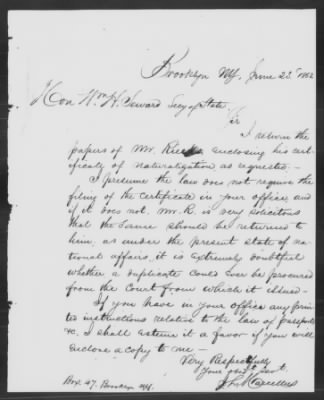 Brooklyn NY. June 23 1862
Hon Wm H. Seward Secy of State
Sir
I return the
papers of Mr. enclosing his cer-
tificate of naturalization as requested. –
I presume the law does not require the
filing of the Certificate in your office, and
if it does not, Mr. R. is very solicitous
that the same should be returned to
him, as under the present state of na-
tional affairs, it is extremely doubtful
whether a duplicate could ever be procured
from the Court from which it issued –
If you have in your office any prin-
ted instructions relative to the law of passports
&c. I shall esteem it a favor if you will
enclose a copy to me –
Very Respectfully
Your obdt Servt.
Box 47. Brooklyn NY.